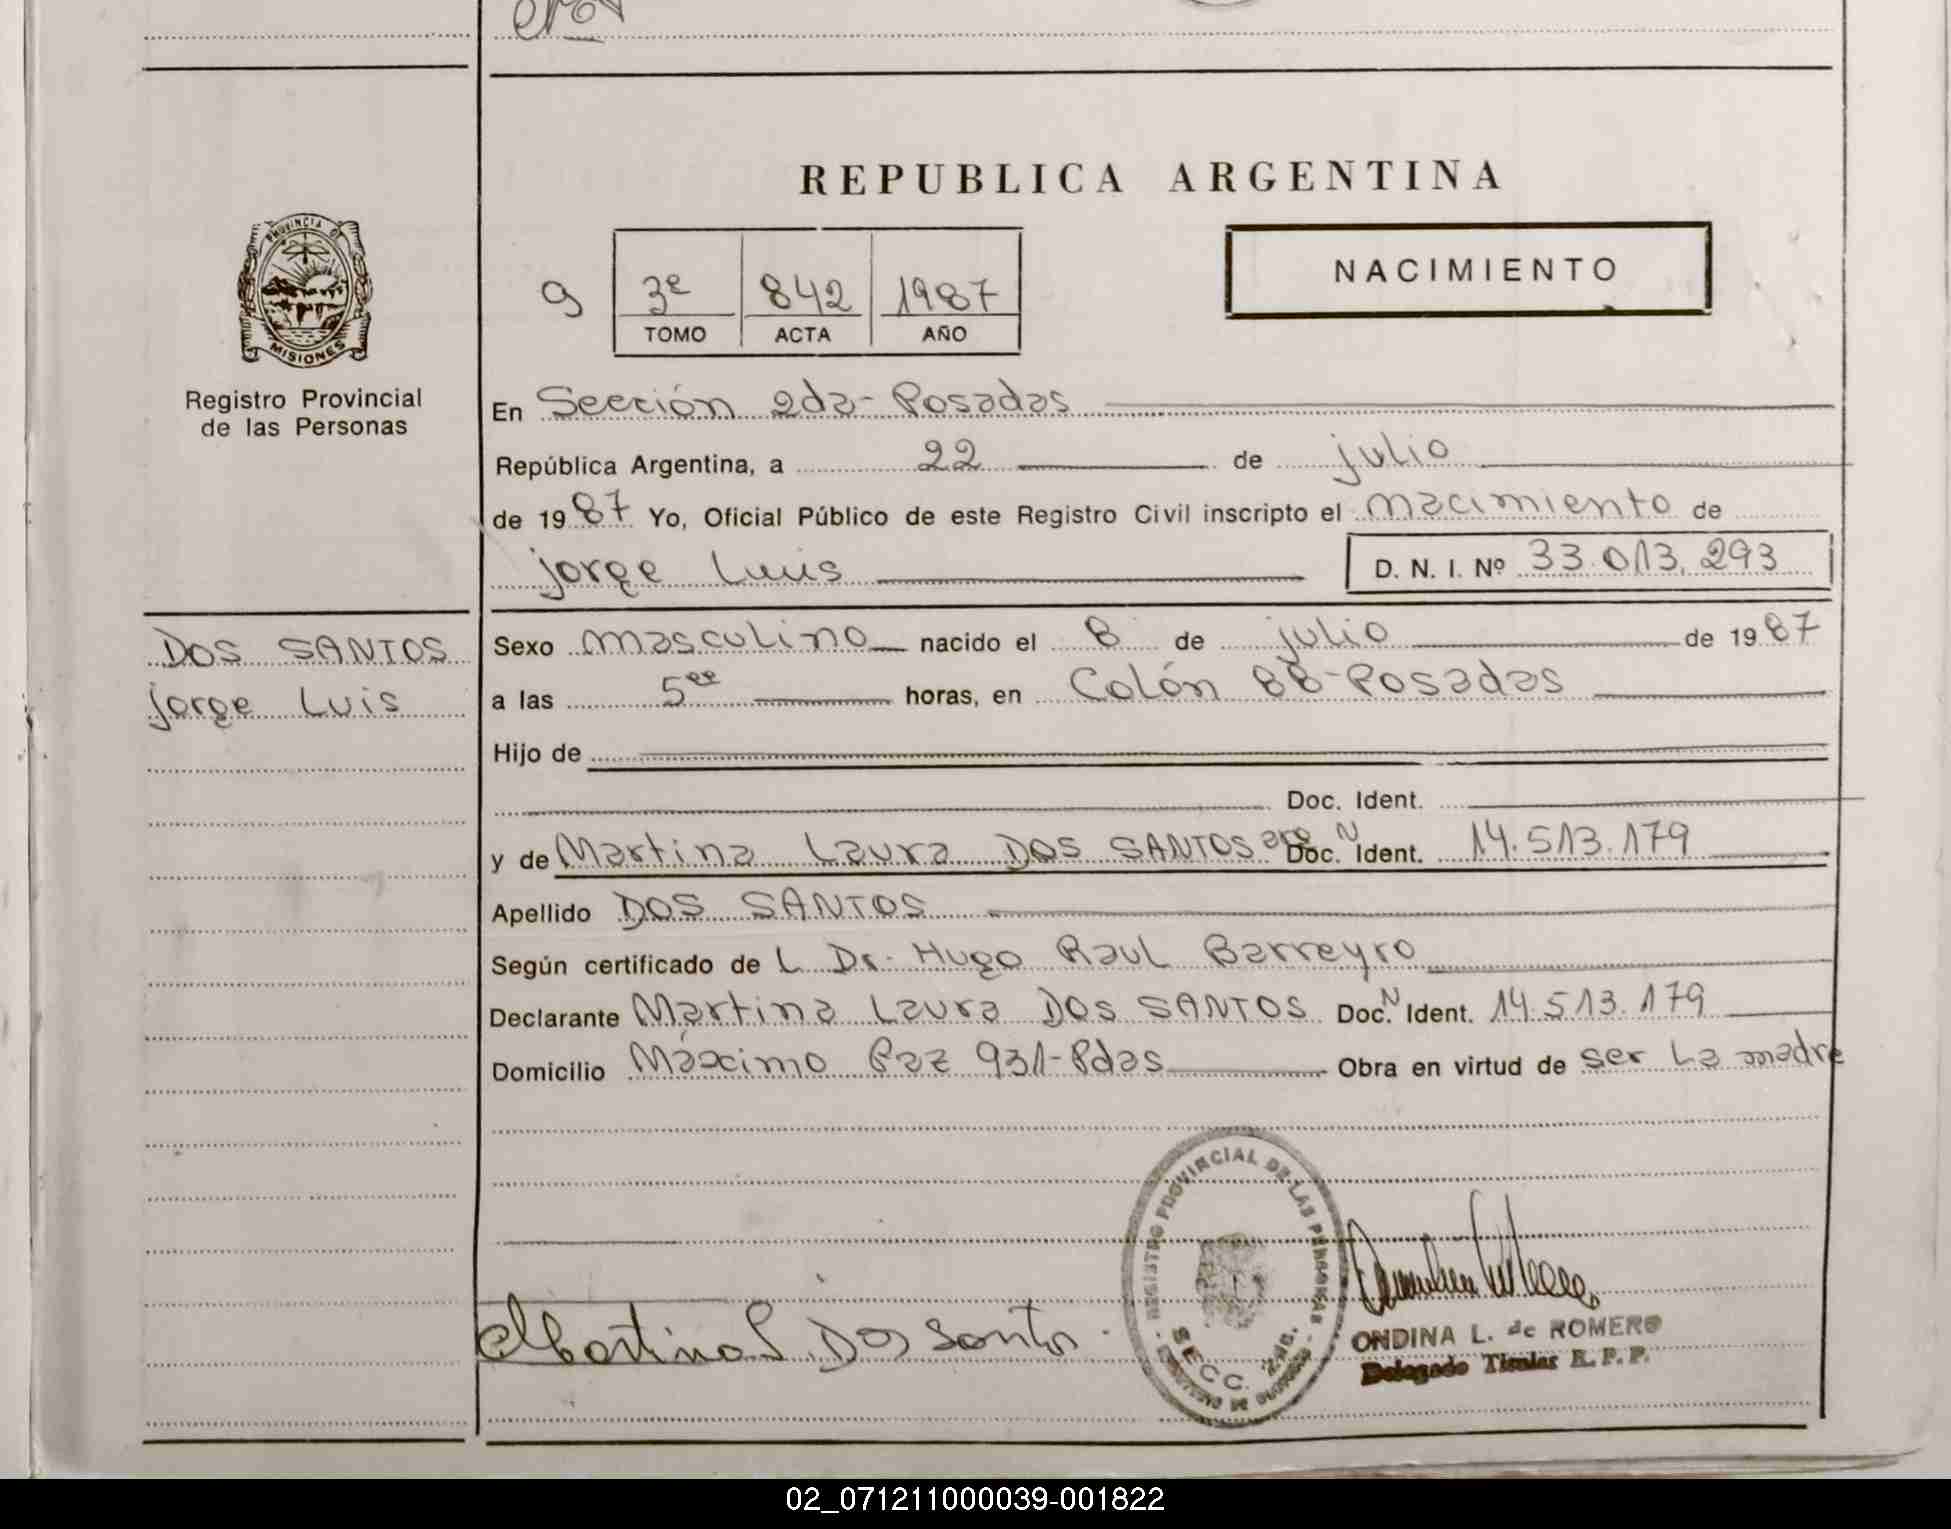 REPUBLICA ARGENTINA
PROVINCIA DE
MISIONES
Registro Provincial
de las Personas
NACIMIENTO
9 3º 842 1987
TOMO ACTA AÑO
En Sección 2da- Posadas
República Argentina, a 22 de julio
de 1987 Yo, Oficial Público de este Registro Civil inscripto el nacimiento de
jorge Luis D. N. I. Nº 33.013.293
DOS SANTOS
jorge Luis
Sexo masculino nacido el 8 de julio de 1987
a las 5 horas, en Colón 88-Posadas
Hijo de
Doc. Ident.
y de Martina Laura DOS SANTOS arg Doc. N Ident. 14.513.179
Apellido DOS SANTOS
Según certificado de L Dr. Hugo Raul Barreyro
Declarante Martina Laura DOS SANTOS Doc. N Ident. 14.513.179
Domicilio Máximo Paz 931-Pdas Obra en virtud de ser La madre
REGISTRO PROVINCIAL DE LAS PERSONAS
SECC. 2da.
Martina L Dos Santos
ONDINA L. de ROMERO
Delegado Titular R. P. P.
02_071211000039-001822